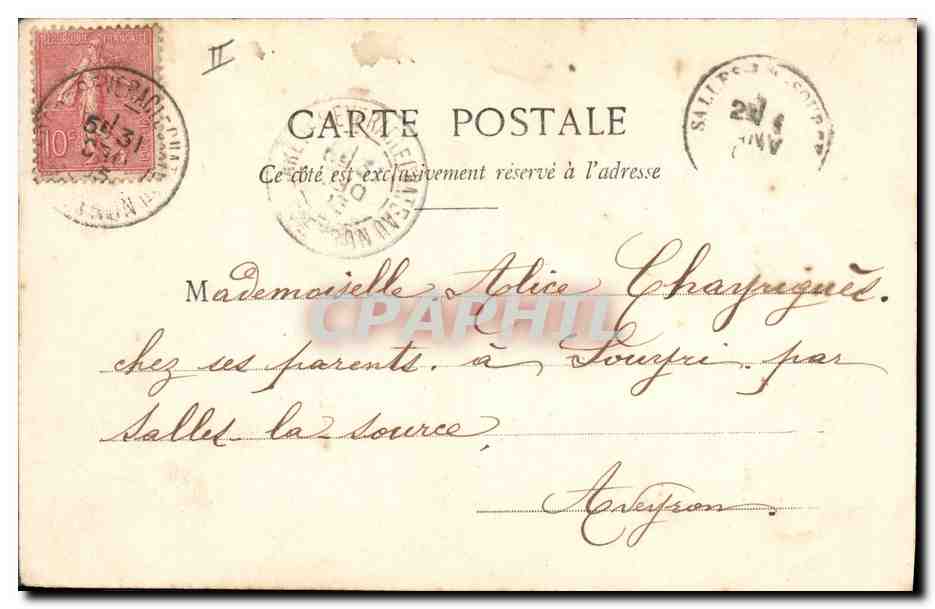 RÉPUBLIQUE FRANÇAISE
10c
II
CARTE POSTALE
Ce côté est exclusivement réservé à l'adresse
SALLES-LA-SOURCE
Mademoiselle Alice Chayriguès.
chez ses parents. à Souyri. par
Salles-la-source.
Aveyron.
CPAPHIL